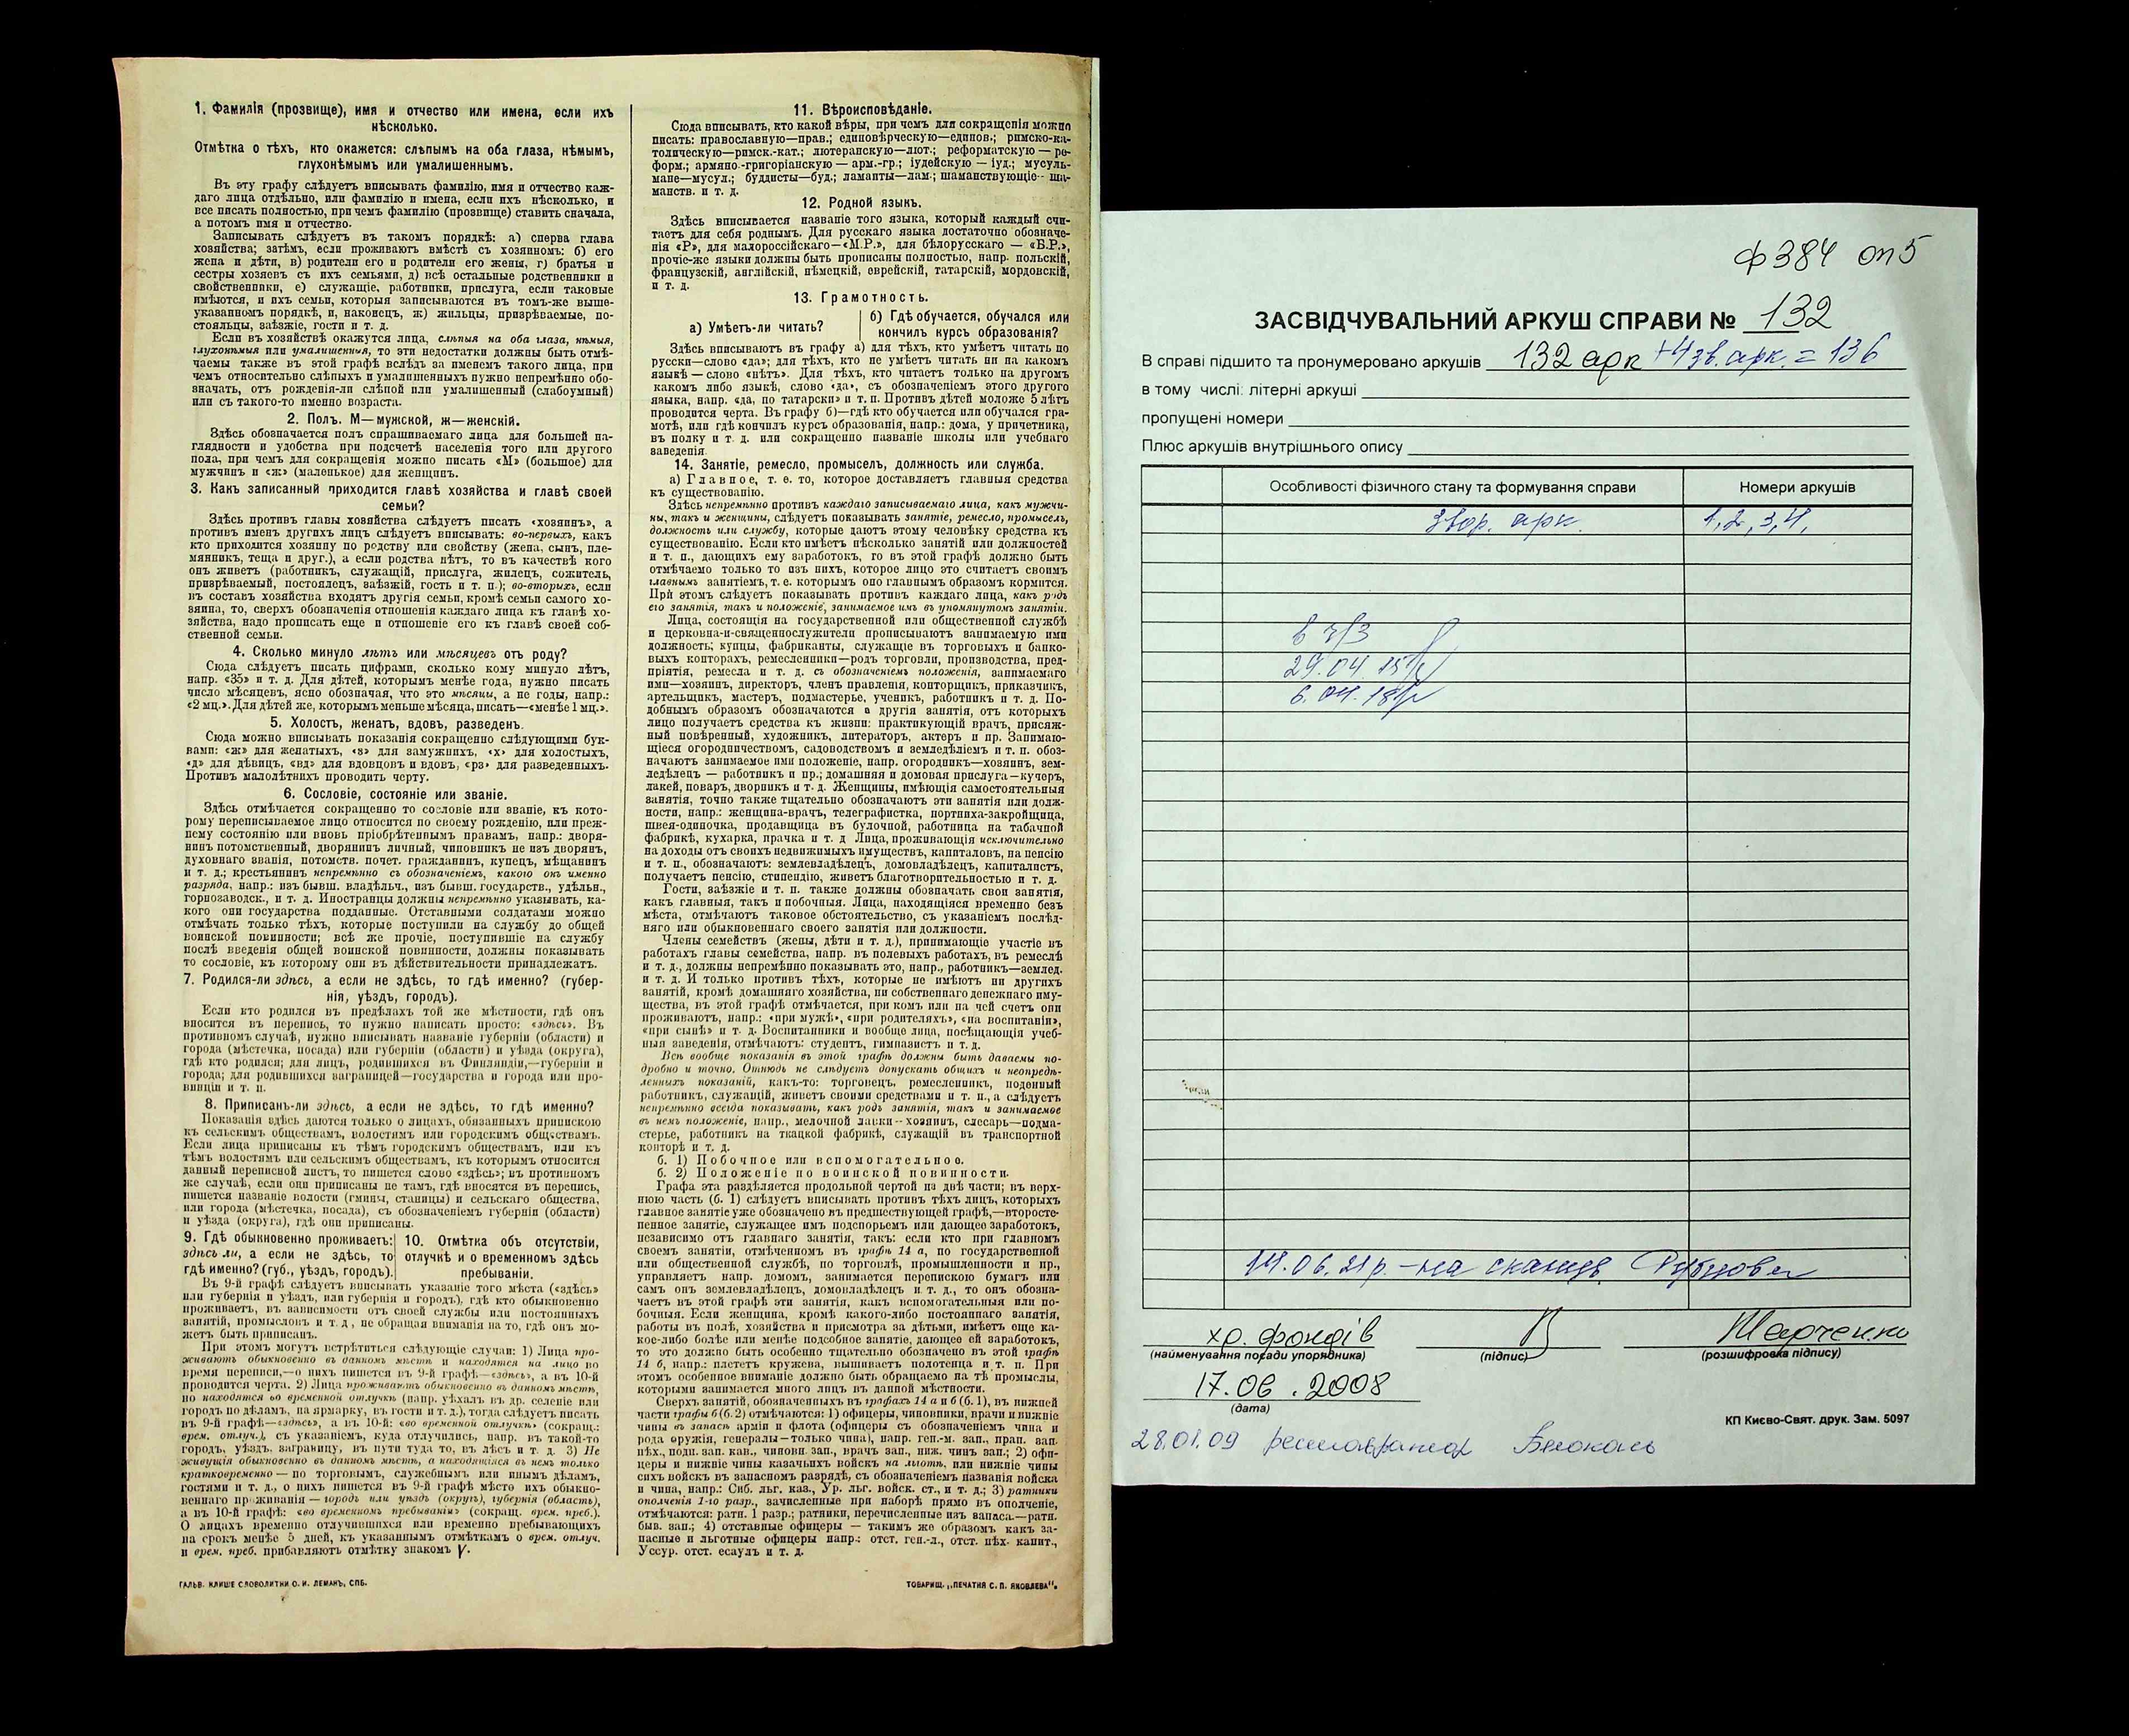 1. Фамилія (прозвище), имя и отчество или имена, если ихъ
нѣсколько.
Отмѣтка о тѣхъ, кто окажется: слѣпымъ на оба глаза, нѣмымъ,
глухонѣмымъ или умалишеннымъ.
Въ эту графу слѣдуетъ вписывать фамилію, имя и отчество каж-
даго лица отдѣльно, или фамилію и имена, если ихъ нѣсколько, и
все писать полностью, при чемъ фамилію (прозвище) ставить сначала,
а потомъ имя и отчество.
Записывать слѣдуетъ въ такомъ порядкѣ: а) сперва глава
хозяйства; затѣмъ, если проживаютъ вмѣстѣ съ хозяиномъ: б) его
жена и дѣти, в) родители его и родители его жены, г) братья и
сестры хозяевъ съ ихъ семьями, д) всѣ остальные родственники и
свойственники, е) служащіе, работники, прислуга, если таковые
имѣются, и ихъ семьи, которыя записываются въ томъ-же выше-
указанномъ порядкѣ, и, наконецъ, ж) жильцы, призрѣваемые, по-
стояльцы, заѣзжіе, гости и т. д.
Если въ хозяйствѣ окажутся лица, слѣпыя на оба глаза, нѣмыя,
глухонѣмыя или умалишенныя, то эти недостатки должны быть отмѣ-
чаемы также въ этой графѣ вслѣдъ за именемъ такого лица, при
чемъ относительно слѣпыхъ и умалишенныхъ нужно непремѣнно обо-
значать, отъ рожденія-ли слѣпой или умалишенный (слабоумный)
или съ такого-то именно возраста.
2. Полъ. М—мужской, ж—женскій.
Здѣсь обозначается полъ спрашиваемаго лица для большей на-
глядности и удобства при подсчетѣ населенія того или другого
пола, при чемъ для сокращенія можно писать «М» (большое) для
мужчинъ и «ж» (маленькое) для женщинъ.
3. Какъ записанный приходится главѣ хозяйства и главѣ своей
семьи?
Здѣсь противъ главы хозяйства слѣдуетъ писать «хозяинъ», а
противъ именъ другихъ лицъ слѣдуетъ вписывать: во-первыхъ, какъ
кто приходится хозяину по родству или свойству (жена, сынъ, пле-
мянникъ, теща и друг.), а если родства нѣтъ, то въ качествѣ кого
онъ живетъ (работникъ, служащій, прислуга, жилецъ, сожитель,
призрѣваемый, постоялецъ, заѣзжій, гость и т. п.); во-вторыхъ, если
въ составъ хозяйства входятъ другія семьи, кромѣ семьи самого хо-
зяина, то, сверхъ обозначенія отношенія каждаго лица къ главѣ хо-
зяйства, надо прописать еще и отношеніе его къ главѣ своей соб-
ственной семьи.
4. Сколько минуло лѣтъ или мѣсяцевъ отъ роду?
Сюда слѣдуетъ писать цифрами, сколько кому минуло лѣтъ,
напр. «35» и т. д. Для дѣтей, которымъ менѣе года, нужно писать
число мѣсяцевъ, ясно обозначая, что это мѣсяцы, а не годы, напр.:
«2 мц.». Для дѣтей же, которымъ меньше мѣсяца, писать—«менѣе 1 мц.».
5. Холостъ, женатъ, вдовъ, разведенъ.
Сюда можно вписывать показанія сокращенно слѣдующими бук-
вами: «ж» для женатыхъ, «з» для замужнихъ, «х» для холостыхъ,
«д» для дѣвицъ, «вд» для вдовцовъ и вдовъ, «рз» для разведенныхъ.
Противъ малолѣтнихъ проводить черту.
6. Сословіе, состояніе или званіе.
Здѣсь отмѣчается сокращенно то сословіе или званіе, къ кото-
рому переписываемое лицо относится по своему рожденію, или преж-
нему состоянію или вновь пріобрѣтеннымъ правамъ, напр.: дворя-
нинъ потомственный, дворянинъ личный, чиновникъ не изъ дворянъ,
духовнаго званія, потомств. почет. гражданинъ, купецъ, мѣщанинъ
и т. д.; крестьянинъ непремѣнно съ обозначеніемъ, какого онъ именно
разряда, напр.: изъ бывш. владѣльч., изъ бывш. государств., удѣльн.,
горнозаводск., и т. д. Иностранцы должны непремѣнно указывать, ка-
кого они государства подданные. Отставными солдатами можно
отмѣчать только тѣхъ, которые поступили на службу до общей
воинской повинности; всѣ же прочіе, поступившіе на службу
послѣ введенія общей воинской повинности, должны показывать
то сословіе, къ которому они въ дѣйствительности принадлежатъ.
7. Родился-ли здѣсь, а если не здѣсь, то гдѣ именно? (губер-
нія, уѣздъ, городъ).
Если кто родился въ предѣлахъ той же мѣстности, гдѣ онъ
вносится въ перепись, то нужно написать просто: «здѣсь». Въ
противномъ случаѣ, нужно вписывать названіе губерніи (области) и
города (мѣстечка, посада) или губерніи (области) и уѣзда (округа),
гдѣ кто родился; для лицъ, родившихся въ Финляндіи,—губерніи и
города; для родившихся заграницей—государства и города или про-
винціи и т. п.
8. Приписанъ-ли здѣсь, а если не здѣсь, то гдѣ именно?
Показанія здѣсь даются только о лицахъ, обязанныхъ припискою
къ сельскимъ обществамъ, волостямъ или городскимъ обществамъ.
Если лица приписаны къ тѣмъ городскимъ обществамъ, или къ
тѣмъ волостямъ или сельскимъ обществамъ, къ которымъ относится
данный переписной листъ, то пишется слово «здѣсь»; въ противномъ
же случаѣ, если они приписаны не тамъ, гдѣ вносятся въ перепись,
пишется названіе волости (гмины, станицы) и сельскаго общества,
или города (мѣстечка, посада), съ обозначеніемъ губерніи (области)
и уѣзда (округа), гдѣ они приписаны.
9. Гдѣ обыкновенно проживаетъ:
здѣсь ли, а если не здѣсь, то
гдѣ именно? (губ., уѣздъ, городъ).
10. Отмѣтка объ отсутствіи,
отлучкѣ и о временномъ здѣсь
пребываніи.
Въ 9-й графѣ слѣдуетъ вписывать указаніе того мѣста («здѣсь»
или губернія и уѣздъ, или губернія и городъ), гдѣ кто обыкновенно
проживаетъ, въ зависимости отъ своей службы или постоянныхъ
занятій, промысловъ и т. д., не обращая вниманія на то, гдѣ онъ мо-
жетъ быть приписанъ.
При этомъ могутъ встрѣтиться слѣдующіе случаи: 1) Лица про-
живаютъ обыкновенно въ данномъ мѣстѣ и находятся на лицо во
время переписи,—о нихъ пишется въ 9-й графѣ—«здѣсь», а въ 10-й
проводится черта. 2) Лица проживаютъ обыкновенно въ данномъ мѣстѣ,
но находятся во временной отлучкѣ (напр. уѣхалъ въ др. селеніе или
городъ по дѣламъ, на ярмарку, въ гости и т. д.), тогда слѣдуетъ писать
въ 9-й графѣ—«здѣсь», а въ 10-й: «во временной отлучкѣ» (сокращ.:
врем. отлуч.), съ указаніемъ, куда отлучились, напр. въ такой-то
городъ, уѣздъ, заграницу, въ пути туда то, въ лѣсъ и т. д. 3) Не
живущія обыкновенно въ данномъ мѣстѣ, а находящіяся въ немъ только
кратковременно — по торговымъ, служебнымъ или инымъ дѣламъ,
гостями и т. д., о нихъ пишется въ 9-й графѣ мѣсто ихъ обыкно-
веннаго проживанія — городъ или уѣздъ (округъ), губернія (область),
а въ 10-й графѣ: «во временномъ пребываніи» (сокращ. врем. преб.).
О лицахъ временно отлучившихся или временно пребывающихъ
на срокъ менѣе 5 дней, къ указаннымъ отмѣткамъ о врем. отлуч.
и врем. преб. прибавляютъ отмѣтку знакомъ V.
ГАЛЬВ. КЛИШЕ СЛОВОЛИТНИ О. И. ЛЕМАНЪ, СПБ.
11. Вѣроисповѣданіе.
Сюда вписывать, кто какой вѣры, при чемъ для сокращенія можно
писать: православную—прав.; единовѣрческую—единов.; римско-ка-
толическую—римск.-кат.; лютеранскую—лют.; реформатскую — ре-
форм.; армяно-григоріанскую — арм.-гр.; іудейскую — іуд.; мусуль-
мане—мусул.; буддисты—буд.; ламаиты—лам.; шаманствующіе-- ша-
манств. и т. д.
12. Родной языкъ.
Здѣсь вписывается названіе того языка, который каждый счи-
таетъ для себя роднымъ. Для русскаго языка достаточно обозначе-
нія «Р», для малороссійскаго—«М.Р.», для бѣлорусскаго — «Б.Р.»,
прочіе-же языки должны быть прописаны полностью, напр. польскій,
французскій, англійскій, нѣмецкій, еврейскій, татарскій, мордовскій,
и т. д.
13. Грамотность.
а) Умѣетъ-ли читать?
б) Гдѣ обучается, обучался или
кончилъ курсъ образованія?
Здѣсь вписываютъ въ графу а) для тѣхъ, кто умѣетъ читать по
русски—слово «да»; для тѣхъ, кто не умѣетъ читать ни на какомъ
языкѣ — слово «нѣтъ». Для тѣхъ, кто читаетъ только на другомъ
какомъ либо языкѣ, слово «да», съ обозначеніемъ этого другого
языка, напр. «да, по татарски» и т. п. Противъ дѣтей моложе 5 лѣтъ
проводится черта. Въ графу б)—гдѣ кто обучается или обучался гра-
мотѣ, или гдѣ кончилъ курсъ образованія, напр.: дома, у причетника,
въ полку и т. д. или сокращенно названіе школы или учебнаго
заведенія.
14. Занятіе, ремесло, промыселъ, должность или служба.
а) Главное, т. е. то, которое доставляетъ главныя средства
къ существованію.
Здѣсь непремѣнно противъ каждаго записываемаго лица, какъ мужчи-
ны, такъ и женщины, слѣдуетъ показывать занятіе, ремесло, промыселъ,
должность или службу, которые даютъ этому человѣку средства къ
существованію. Если кто имѣетъ нѣсколько занятій или должностей
и т. п., дающихъ ему заработокъ, то въ этой графѣ должно быть
отмѣчаемо только то изъ нихъ, которое лицо это считаетъ своимъ
главнымъ занятіемъ, т. е. которымъ оно главнымъ образомъ кормится.
При этомъ слѣдуетъ показывать противъ каждаго лица, какъ родъ
его занятія, такъ и положеніе, занимаемое имъ въ упомянутомъ занятіи.
Лица, состоящія на государственной или общественной службѣ
и церковно-и-священнослужители прописываютъ занимаемую ими
должность; купцы, фабриканты, служащіе въ торговыхъ и банко-
выхъ конторахъ, ремесленники—родъ торговли, производства, пред-
пріятія, ремесла и т. д. съ обозначеніемъ положенія, занимаемаго
ими—хозяинъ, директоръ, членъ правленія, конторщикъ, приказчикъ,
артельщикъ, мастеръ, подмастерье, ученикъ, работникъ и т. д. По-
добнымъ образомъ обозначаются и другія занятія, отъ которыхъ
лицо получаетъ средства къ жизни: практикующій врачъ, присяж-
ный повѣренный, художникъ, литераторъ, актеръ и пр. Занимаю-
щіеся огородничествомъ, садоводствомъ и земледѣліемъ и т. п. обоз-
начаютъ занимаемое ими положеніе, напр. огородникъ—хозяинъ, зем-
ледѣлецъ — работникъ и пр.; домашняя и домовая прислуга—кучеръ,
лакей, поваръ, дворникъ и т. д. Женщины, имѣющія самостоятельныя
занятія, точно также тщательно обозначаютъ эти занятія или долж-
ности, напр.: женщина-врачъ, телеграфистка, портниха-закройщица,
швея-одиночка, продавщица въ булочной, работница на табачной
фабрикѣ, кухарка, прачка и т. д Лица, проживающія исключительно
на доходы отъ своихъ недвижимыхъ имуществъ, капиталовъ, на пенсію
и т. п., обозначаютъ: землевладѣлецъ, домовладѣлецъ, капиталистъ,
получаетъ пенсію, стипендію, живетъ благотворительностью и т. д.
Гости, заѣзжіе и т. п. также должны обозначать свои занятія,
какъ главныя, такъ и побочныя. Лица, находящіяся временно безъ
мѣста, отмѣчаютъ таковое обстоятельство, съ указаніемъ послѣд-
няго или обыкновеннаго своего занятія или должности.
Члены семействъ (жены, дѣти и т. д.), принимающіе участіе въ
работахъ главы семейства, напр. въ полевыхъ работахъ, въ ремеслѣ
и т. д., должны непремѣнно показывать это, напр., работникъ—землед.
и т. д. И только противъ тѣхъ, которые не имѣютъ ни другихъ
занятій, кромѣ домашняго хозяйства, ни собственнаго денежнаго иму-
щества, въ этой графѣ отмѣчается, при комъ или на чей счетъ они
проживаютъ, напр.: «при мужѣ», «при родителяхъ», «на воспитаніи»,
«при сынѣ» и т. д. Воспитанники и вообще лица, посѣщающія учеб-
ныя заведенія, отмѣчаютъ: студентъ, гимназистъ и т. д.
Всѣ вообще показанія въ этой графѣ должны быть даваемы по-
дробно и точно. Отнюдь не слѣдуетъ допускать общихъ и неопредѣ-
ленныхъ показаній, какъ-то: торговецъ, ремесленникъ, поденный
работникъ, служащій, живетъ своими средствами и т. п., а слѣдуетъ
непремѣнно всегда показывать, какъ родъ занятія, такъ и занимаемое
въ немъ положеніе, напр.: мелочной лавки--хозяинъ, слесарь—подма-
стерье, работникъ на ткацкой фабрикѣ, служащій въ транспортной
конторѣ и т. д.
б. 1) Побочное или вспомогательное.
б. 2) Положеніе по воинской повинности.
Графа эта раздѣляется продольной чертой на двѣ части; въ верх-
нюю часть (б. 1) слѣдуетъ вписывать противъ тѣхъ лицъ, которыхъ
главное занятіе уже обозначено въ предшествующей графѣ,—второсте-
пенное занятіе, служащее имъ подспорьемъ или дающее заработокъ,
независимо отъ главнаго занятія, такъ: если кто при главномъ
своемъ занятіи, отмѣченномъ въ графѣ 14 а, по государственной
или общественной службѣ, по торговлѣ, промышленности и пр.,
управляетъ напр. домомъ, занимается перепискою бумагъ или
самъ онъ землевладѣлецъ, домовладѣлецъ и т. д., то онъ обозна-
чаетъ въ этой графѣ эти занятія, какъ вспомогательныя или по-
бочныя. Если женщина, кромѣ какого-либо постояннаго занятія,
работы въ полѣ, хозяйства и присмотра за дѣтьми, имѣетъ еще ка-
кое-либо болѣе или менѣе подсобное занятіе, дающее ей заработокъ,
то это должно быть особенно тщательно обозначено въ этой графѣ
14 б, напр.: плететъ кружева, вышиваетъ полотенца и т. п. При
этомъ особенное вниманіе должно быть обращаемо на тѣ промыслы,
которыми занимается много лицъ въ данной мѣстности.
Сверхъ занятій, обозначенныхъ въ графахъ 14 а и б (б. 1), въ нижней
части графы б (б. 2) отмѣчаются: 1) офицеры, чиновники, врачи и нижніе
чины въ запасѣ арміи и флота (офицеры съ обозначеніемъ чина и
рода оружія, генералы—только чина), напр. ген.-м. зап., прап. зап.
пѣх., подп. зап. кав., чиновн. зап., врачъ зап., ниж. чинъ зап.; 2) офи-
церы и нижніе чины казачьихъ войскъ на льготѣ, или нижніе чины
сихъ войскъ въ запасномъ разрядѣ, съ обозначеніемъ названія войска
и чина, напр.: Сиб. льг. каз., Ур. льг. войск. ст., и т. д.; 3) ратники
ополченія 1-го разр., зачисленные при наборѣ прямо въ ополченіе,
отмѣчаются: ратн. 1 разр.; ратники, перечисленные изъ запаса.—ратн.
быв. зап.; 4) отставные офицеры — такимъ же образомъ какъ за-
пасные и льготные офицеры напр.: отст. ген.-л., отст. пѣх. капит.,
Уссур. отст. есаулъ и т. д.
ТОВАРИЩ. „ПЕЧАТНЯ С. П. ЯКОВЛЕВА".
ф 384 оп 5
ЗАСВІДЧУВАЛЬНИЙ АРКУШ СПРАВИ № 132
В справі підшито та пронумеровано аркушів 132 арк + 4 зв. арк. = 136
в тому числі: літерні аркуші
пропущені номери
Плюс аркушів внутрішнього опису
Особливості фізичного стану та формування справи
Номери аркушів
звор. арк.
1, 2, 3, 4,
в ч/з
29.04.15
6.04.18
14.06.21р. – на сканув.
хр. фондів
Марченко
(найменування посади упорядника)
(підпис)
(розшифровка підпису)
17.06.2008
(дата)
КП Києво-Свят. друк. Зам. 5097
28.01.09 реставратор